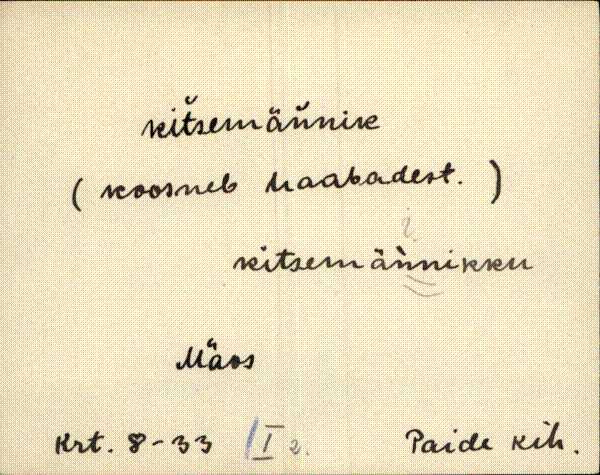 kitsemäńnik
(koosneb haabadest.)
kitsemäǹnikku
Mäos
Krt. 8-33 I 2. Paide kih.